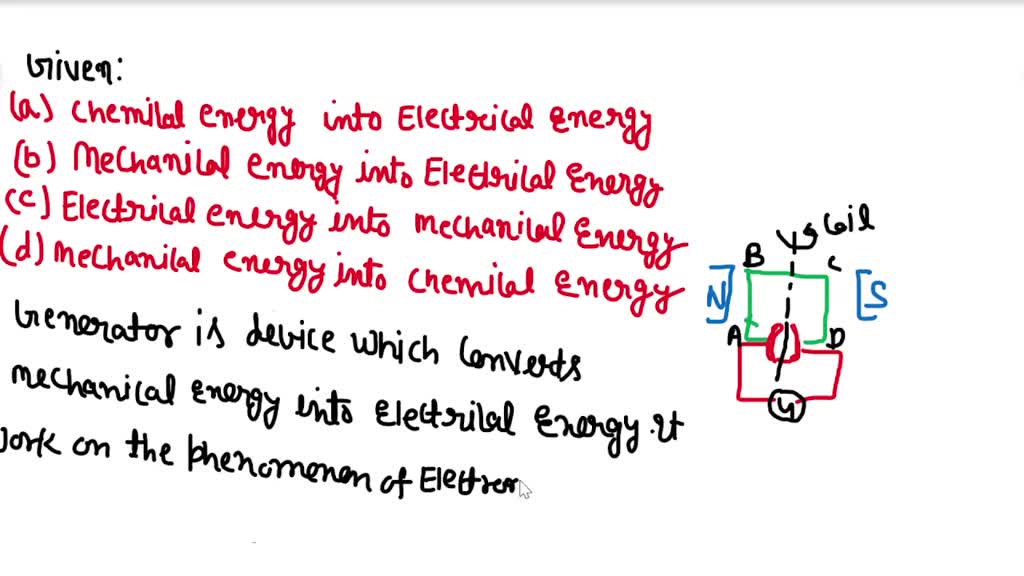 Given:
(a) Chemical energy into Electrical Energy
(b) Mechanical energy into Electrical Energy
(c) Electrical energy into mechanical Energy
(d) Mechanical energy into Chemical Energy
Generator is device which Converts
mechanical Energy into Electrical Energy. It
work on the phenomenon of Electrom
Coil
B C
N S
A D
G